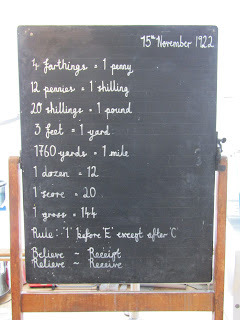 15th November 1922
4 farthings = 1 penny
12 pennies = 1 shilling
20 shillings = 1 pound
3 feet = 1 yard
1760 yards = 1 mile
1 dozen = 12
1 score = 20
1 gross = 144
Rule: 'I' before 'E' except after 'C'
Believe ~ Receipt
Relieve ~ Receive